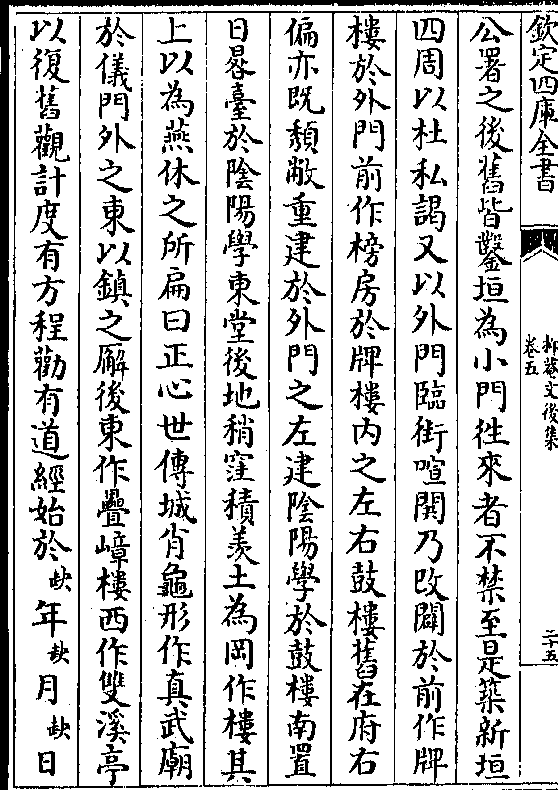 欽定四庫全書
抑菴文後集
卷五
二十五
公署之後舊皆鑿垣為小門徃來者不禁至是築新垣
四周以杜私謁又以外門臨街喧闐乃改闢於前作牌
樓於外門前作榜房於牌樓内之左右鼓樓舊在府右
偏亦既頽敝重建於外門之左建陰陽學於鼓樓南置
日晷臺於陰陽學東堂後地稍窪積羡土為岡作樓其
上以為燕休之所扁曰正心世傳城肖龜形作真武廟
於儀門外之東以鎮之廨後東作疊嶂樓西作雙溪亭
以復舊觀計度有方程勸有道經始於缺年缺月缺日